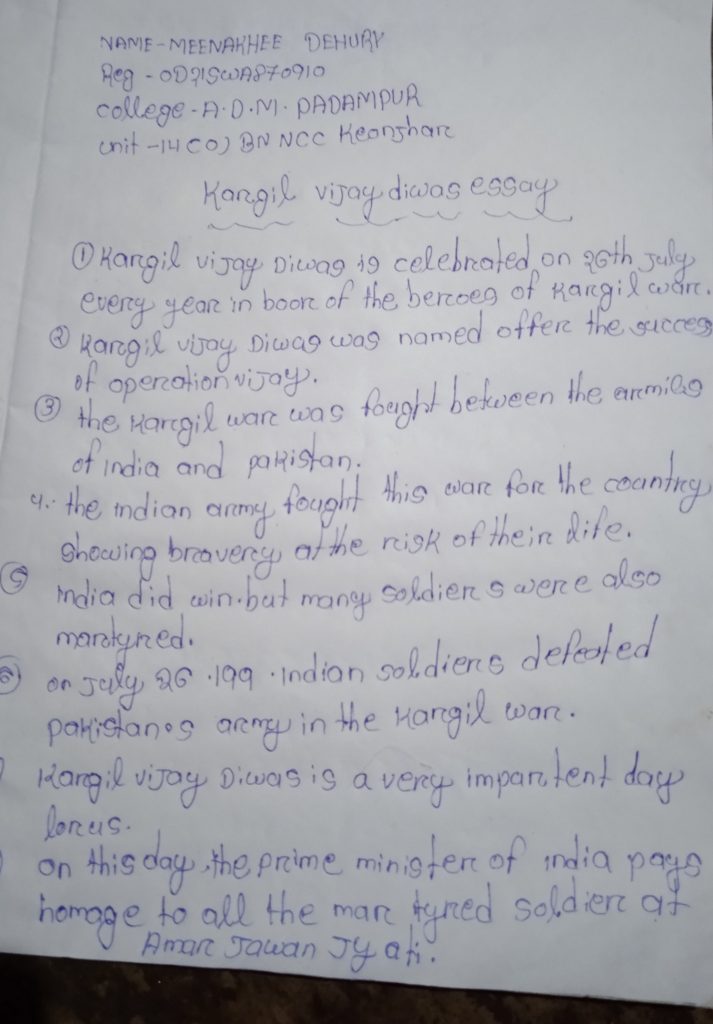 NAME-MEENAKHEE DEHURY
Reg - OD21SWA870910
college-A.D.M. PADAMPUR
unit -14 CO) BN NCC Keonjhar
Kargil vijay diwas essay
① Kargil vijay Diwas is celebrated on 26th july
every year in boor of the beroes of Kargil war.
② Kargil vijay Diwas was named offer the success
of operation vijay.
③ the Kargil war was fought between the armies
of india and pakistan.
4. the indian army fought this war for the country
showing bravery at the risk of their life.
⑤ india did win. but many soldiers were also
martyred.
⑥ on july 26 .199 . indian soldiers defeated
pakistan.s army in the Kargil war.
Kargil vijay Diwas is a very impartent day
forus.
on this day, the prime minister of india pays
homage to all the mar tyred soldier at
Amar Jawan Jyati.